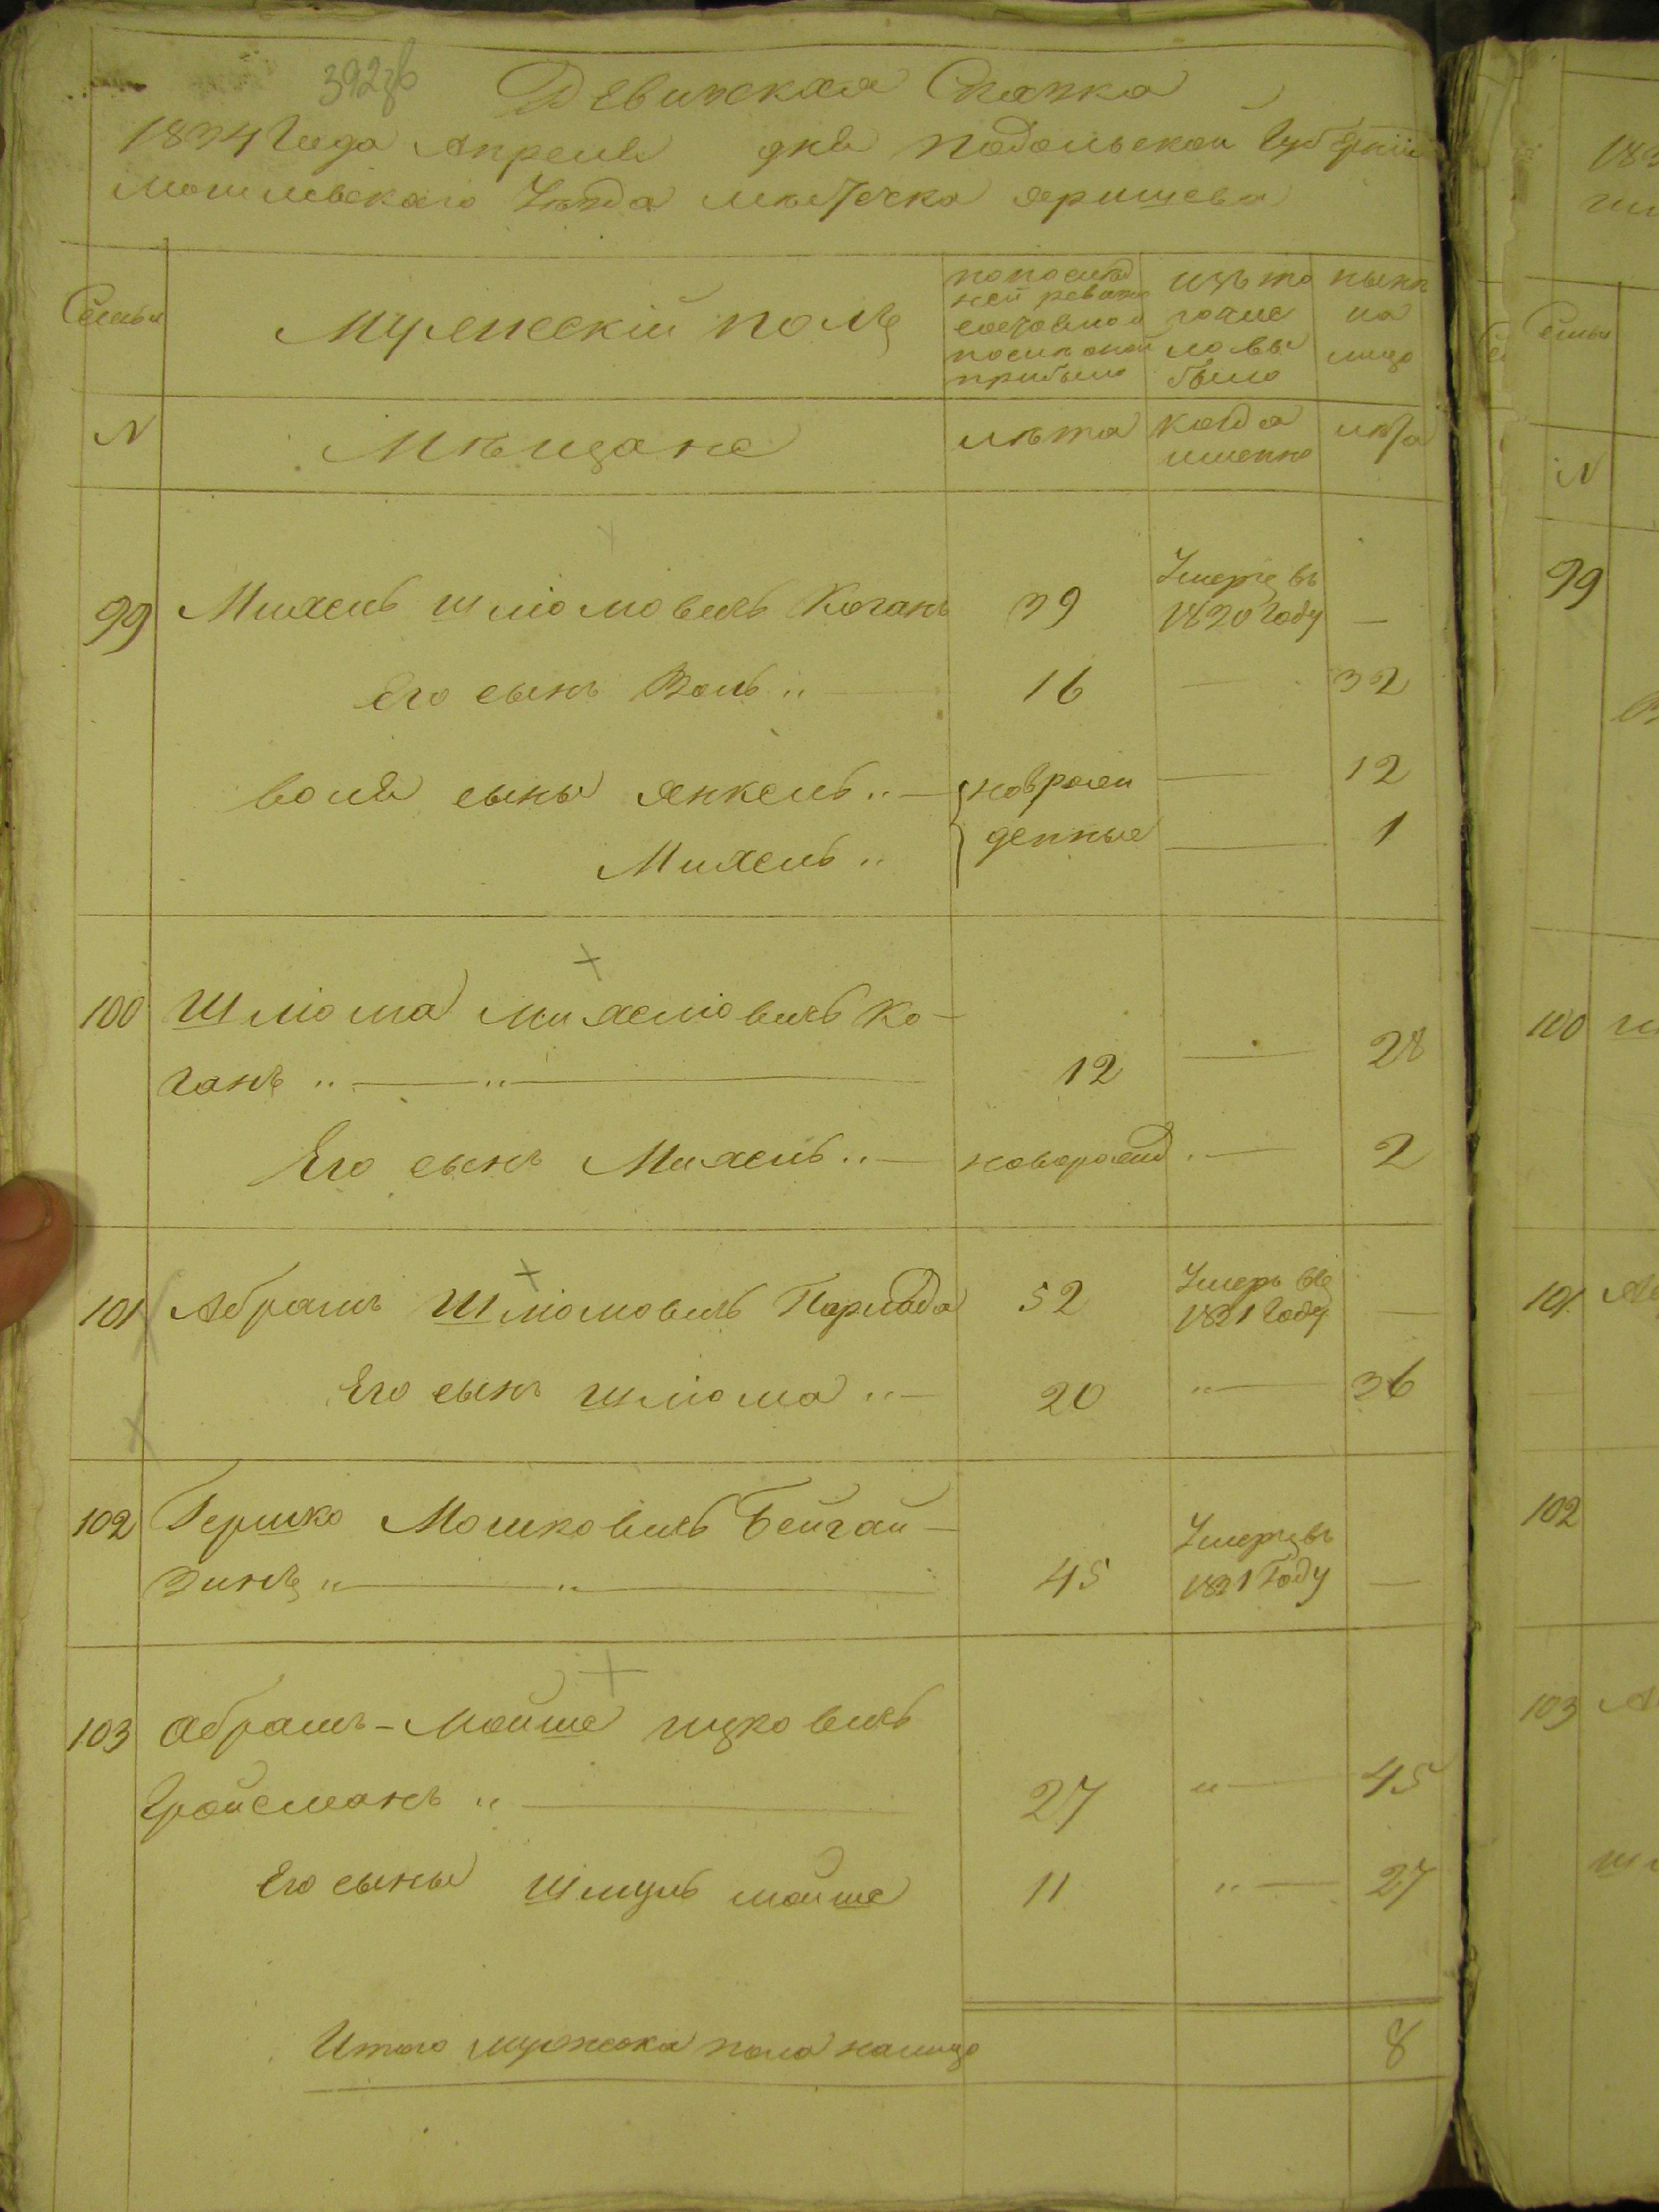 392зв
Ревижская Сказка
1834 Года Апреля дня Подольской Губернiи
Могилевскаго Уѣзда мѣстечка Яришева
Семьи
Мужескiй полъ
по послѣд
ней ревизiи
состояло и
после оной
прибыло
изъ то
го чис
ло вы
было
нынѣ
на
лицо
N
Мѣщане
лѣта
когда
именно
лѣта
99 Михель Шлiомовичъ Коганъ 39 Умеръ въ 1830 Году —
Его сынъ Воль 16 — 32
Воля сыны Янкель новрож — 12
Михель денные — 1
100 Шлiома Михелiовичъ Ко-
ганъ 12 — 28
Его сынъ Михель новорожд — 2
101 Абрамъ Шлiомовичъ Парнода 52 Умеръ въ 1831 Году —
Его сынъ Шлiома 20 — 36
102 Гершко Мошковичъ Бейгай-
зинъ 45 Умеръ въ 1831 Году —
103 Абрамъ-Мойше Ицковичъ
Гройсманъ 27 — 45
Его сыны Шмуль Мойше 11 — 27
Итого мужеска пола налицо 8
183
Семьи
N
99
100
101
102
103